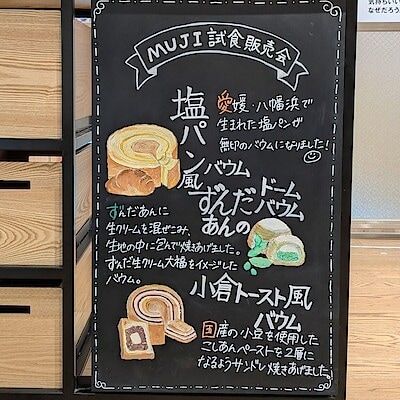 気持ちいい
なぜだろう
MUJI 試食販売会
塩パン風バウム
愛媛・八幡浜で
生まれた塩パンが
無印のバウムになりました!
ずんだあんの
ドームバウム
ずんだあんに
生クリームを混ぜこみ、
生地の中に包んで焼きあげました。
ずんだ生クリーム大福をイメージした
バウム。
小倉トースト風
バウム
国産の小豆を使用した
こしあんペーストを2層に
なるようサンドし焼きあげました。